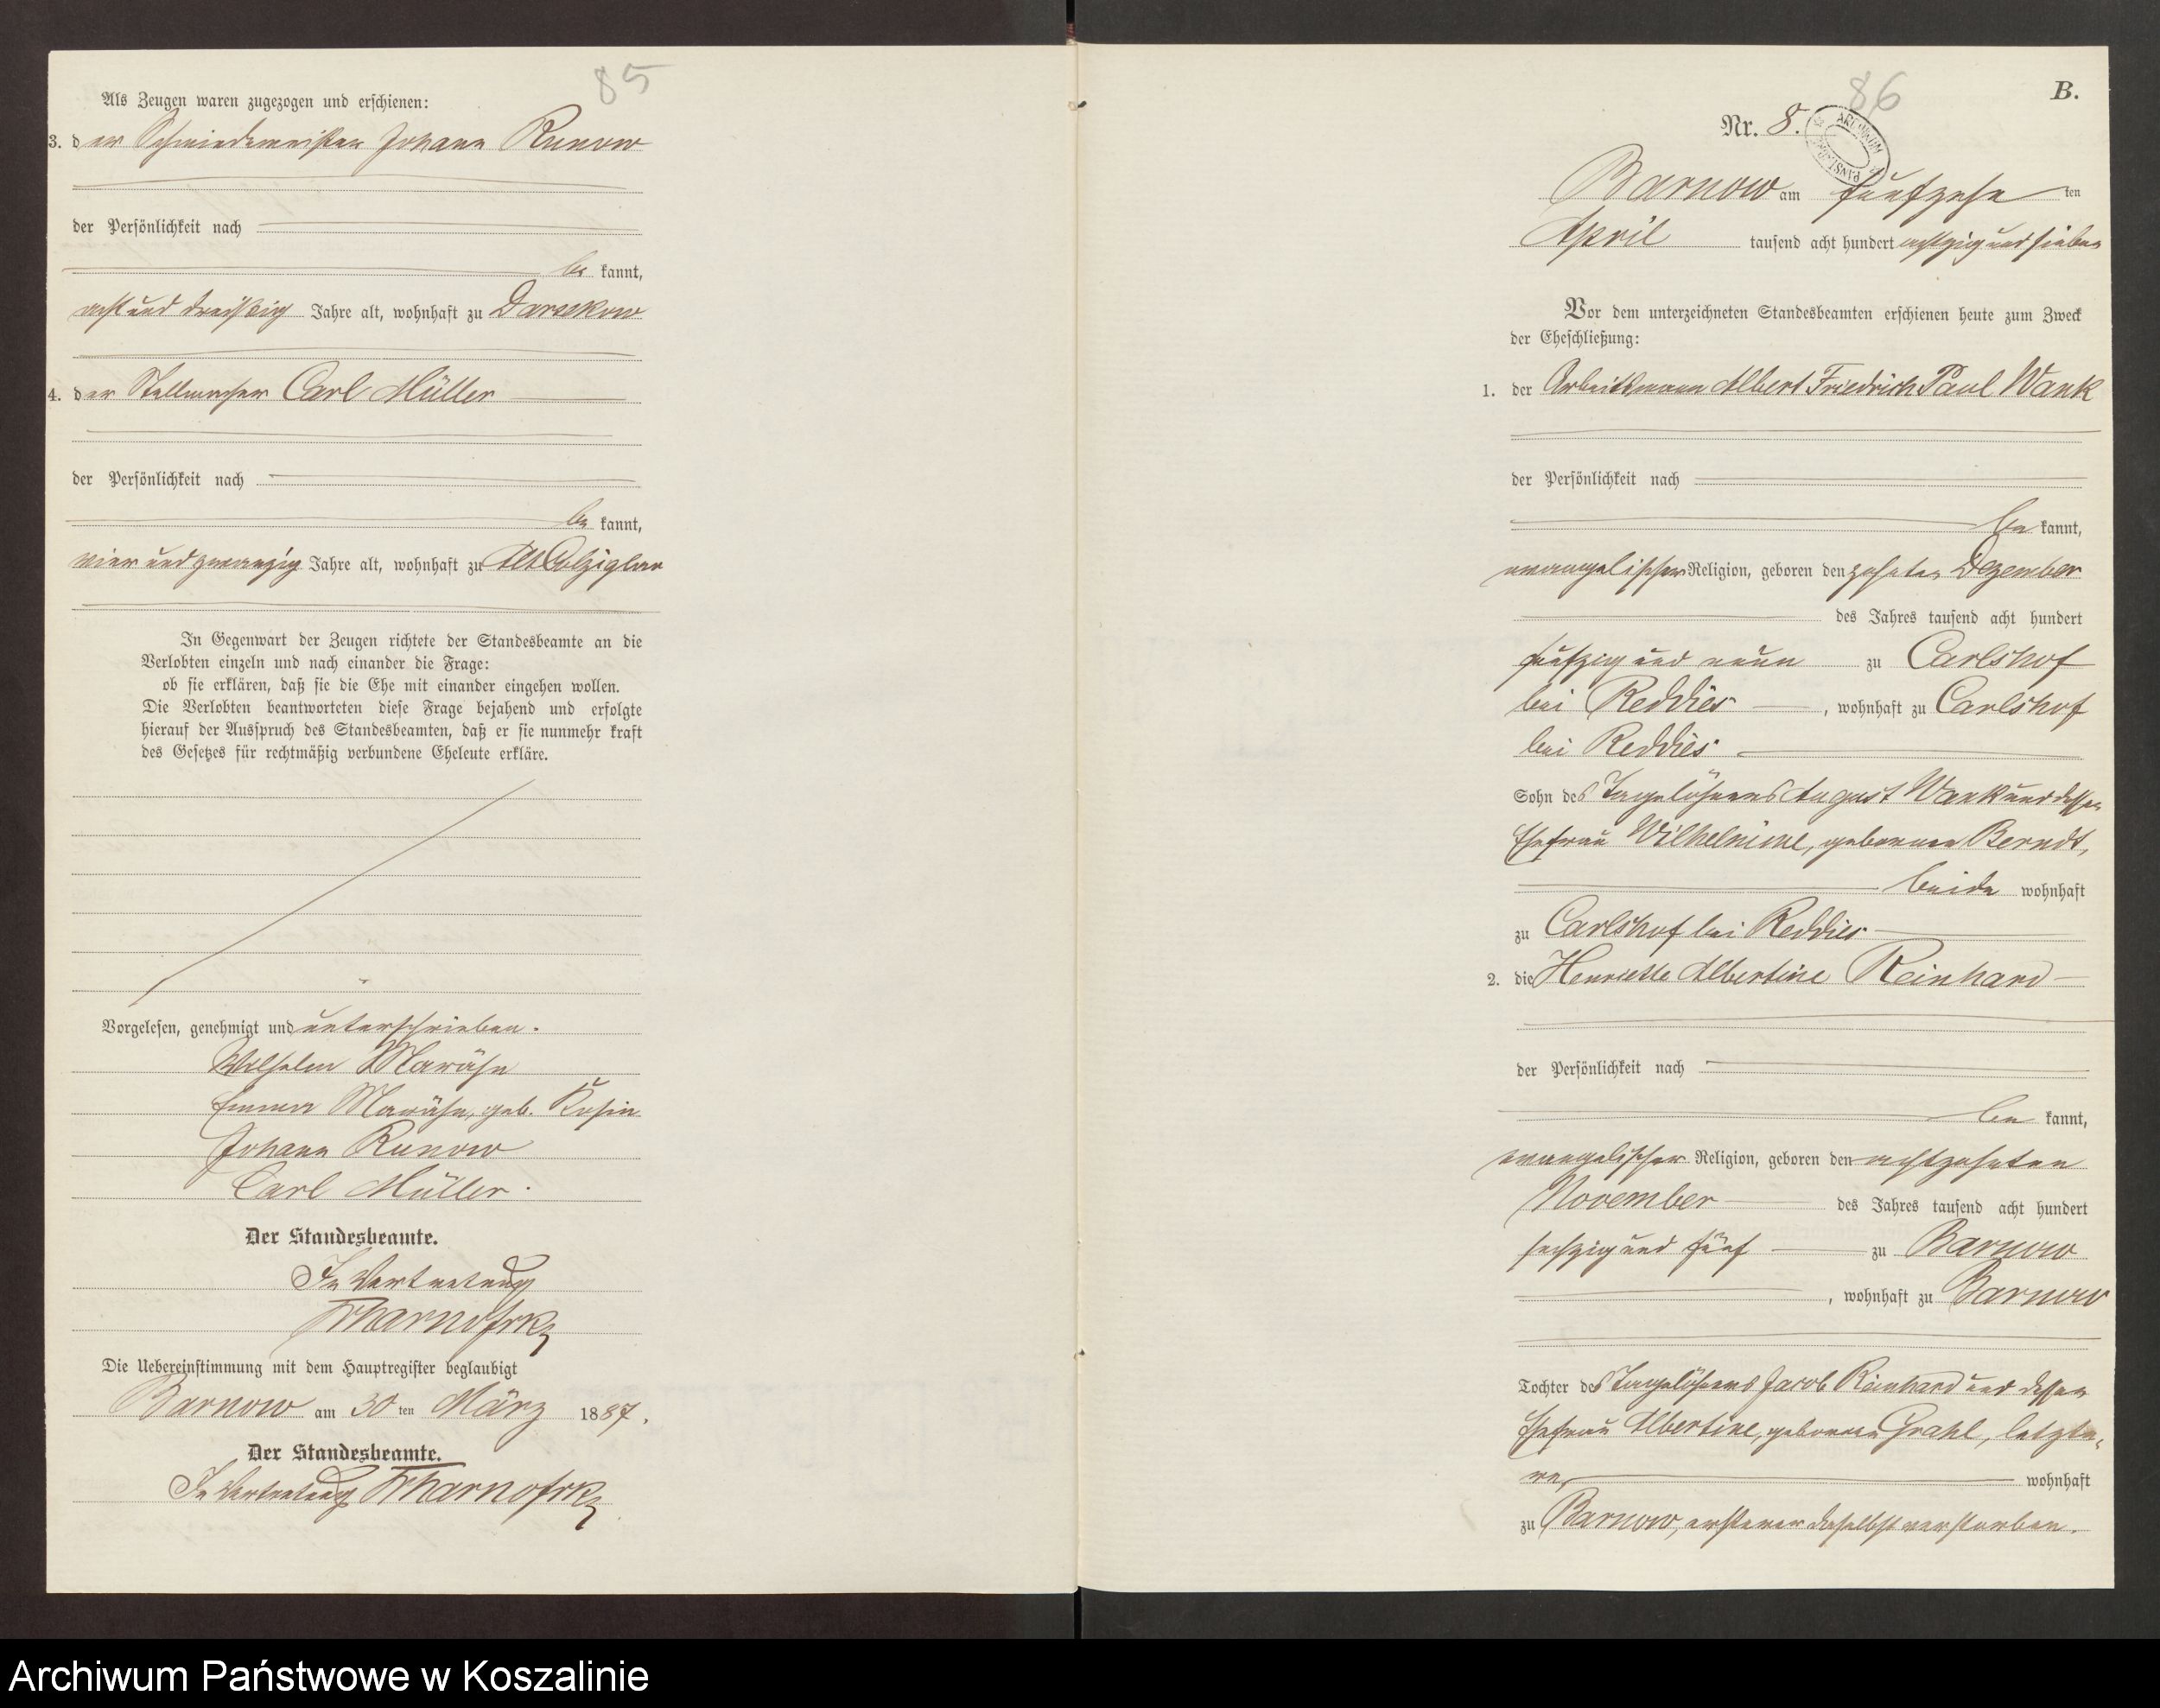 85
Als Zeugen waren zugezogen und erschienen:
3. der Schmiedemeister Johann Runow
der Persönlichkeit nach
be kannt,
acht und dreißig Jahre alt, wohnhaft zu Darsekow
4. der Stellmacher Carl Müller
der Persönlichkeit nach
be kannt,
vier und zwanzig Jahre alt, wohnhaft zu Alt Colziglow
In Gegenwart der Zeugen richtete der Standesbeamte an die
Verlobten einzeln und nach einander die Frage:
ob sie erklären, daß sie die Ehe mit einander eingehen wollen.
Die Verlobten beantworteten diese Frage bejahend und erfolgte
hierauf der Ausspruch des Standesbeamten, daß er sie nunmehr kraft
des Gesetzes für rechtmäßig verbundene Eheleute erkläre.
Vorgelesen, genehmigt und unterschrieben.
Wilhelm Marähn
Emma Marähn, geb. Kosin
Johann Runow
Carl Müller.
Der Standesbeamte.
In Vertretung
Tharnofsky
Die Uebereinstimmung mit dem Hauptregister beglaubigt
Barnow am 30 ten März 1887.
Der Standesbeamte.
In Vertretung Tharnofsky
86
B.
Nr. 8.
Barnow am fünfzehn ten
April tausend acht hundert achtzig und sieben
Vor dem unterzeichneten Standesbeamten erschienen heute zum Zweck
der Eheschließung:
1. der Arbeitsmann Albert Friedrich Paul Wank
der Persönlichkeit nach
be kannt,
evangelischer Religion, geboren den zehnten Dezember
des Jahres tausend acht hundert
fünfzig und neun zu Carlshof
bei Reddies, wohnhaft zu Carlshof
bei Reddies
Sohn des Tagelöhners August Wank und dessen
Ehefrau Wilhelmine, geborenen Berndt,
beide wohnhaft
zu Carlshof bei Reddies
2. die Henriette Albertine Reinhard
der Persönlichkeit nach
be kannt,
evangelischer Religion, geboren den achtzehnten
November des Jahres tausend acht hundert
sechzig und fünf zu Barnow
, wohnhaft zu Barnow
Tochter des Tagelöhners Jacob Reinhard und dessen
Ehefrau Albertine, geborenen Grahl, letzte-
re, wohnhaft
zu Barnow, ersterer daselbst verstorben.
Archiwum Państwowe w Koszalinie